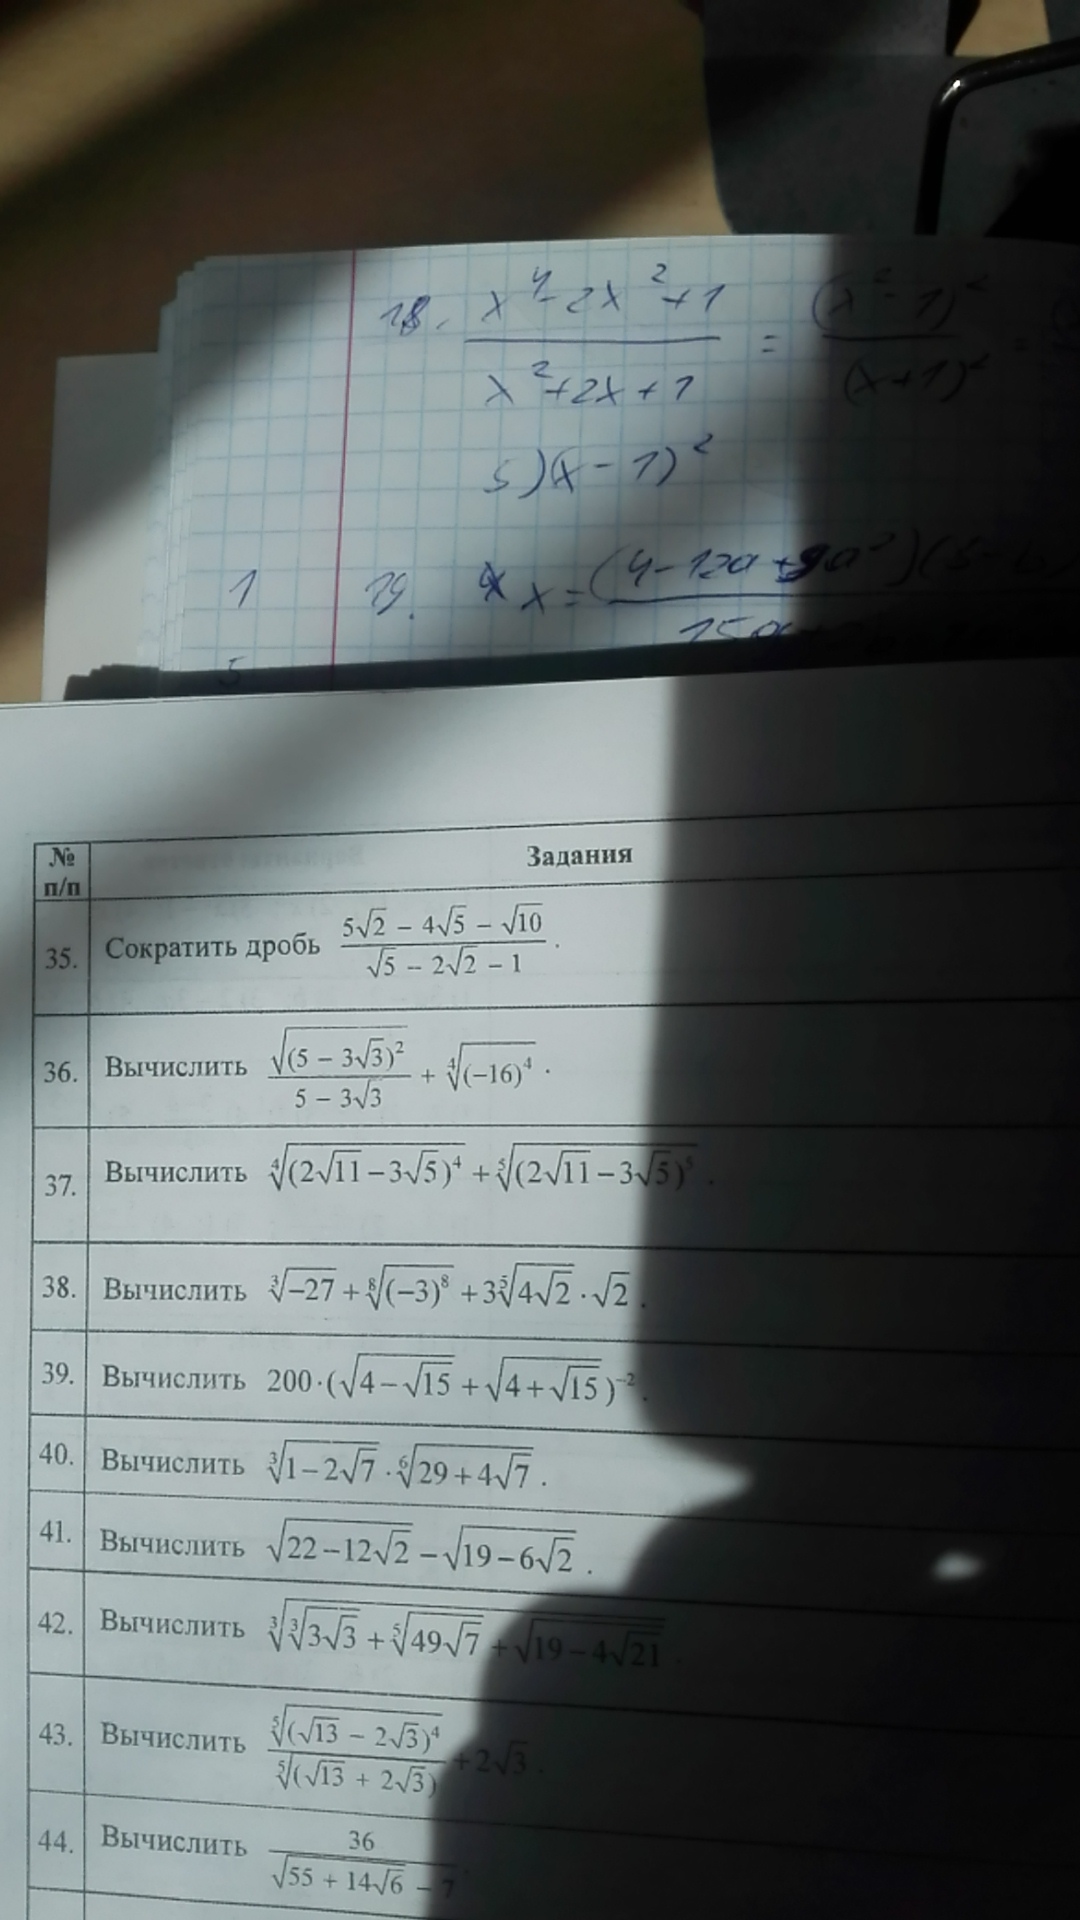 18. (x^4 - 2x^2 + 1)/(x^2 + 2x + 1) = (x^2 - 1)^2/(x + 1)^2 =
5) (x - 1)^2
1 19. x = (4 - 12a + 9a^2)(
5
№ п/п Задания
35. Сократить дробь (5√2 − 4√5 − √10)/(√5 − 2√2 − 1).
36. Вычислить √((5 − 3√3)²)/(5 − 3√3) + ⁴√((−16)⁴).
37. Вычислить ⁴√((2√11 − 3√5)⁴) + ⁵√((2√11 − 3√5)⁵).
38. Вычислить ³√(−27) + ⁸√((−3)⁸) + 3⁵√(4√2) · √2.
39. Вычислить 200·(√(4 − √15) + √(4 + √15))⁻².
40. Вычислить ³√(1 − 2√7) · ⁶√(29 + 4√7).
41. Вычислить √(22 − 12√2) − √(19 − 6√2).
42. Вычислить ³√(³√(3√3) + ⁵√(49√7) + √(19 − 4√21)).
43. Вычислить ⁵√((√13 − 2√3)⁴)/⁵√((√13 + 2√3)) + 2√3.
44. Вычислить 36/(√(55 + 14√6) − 7).